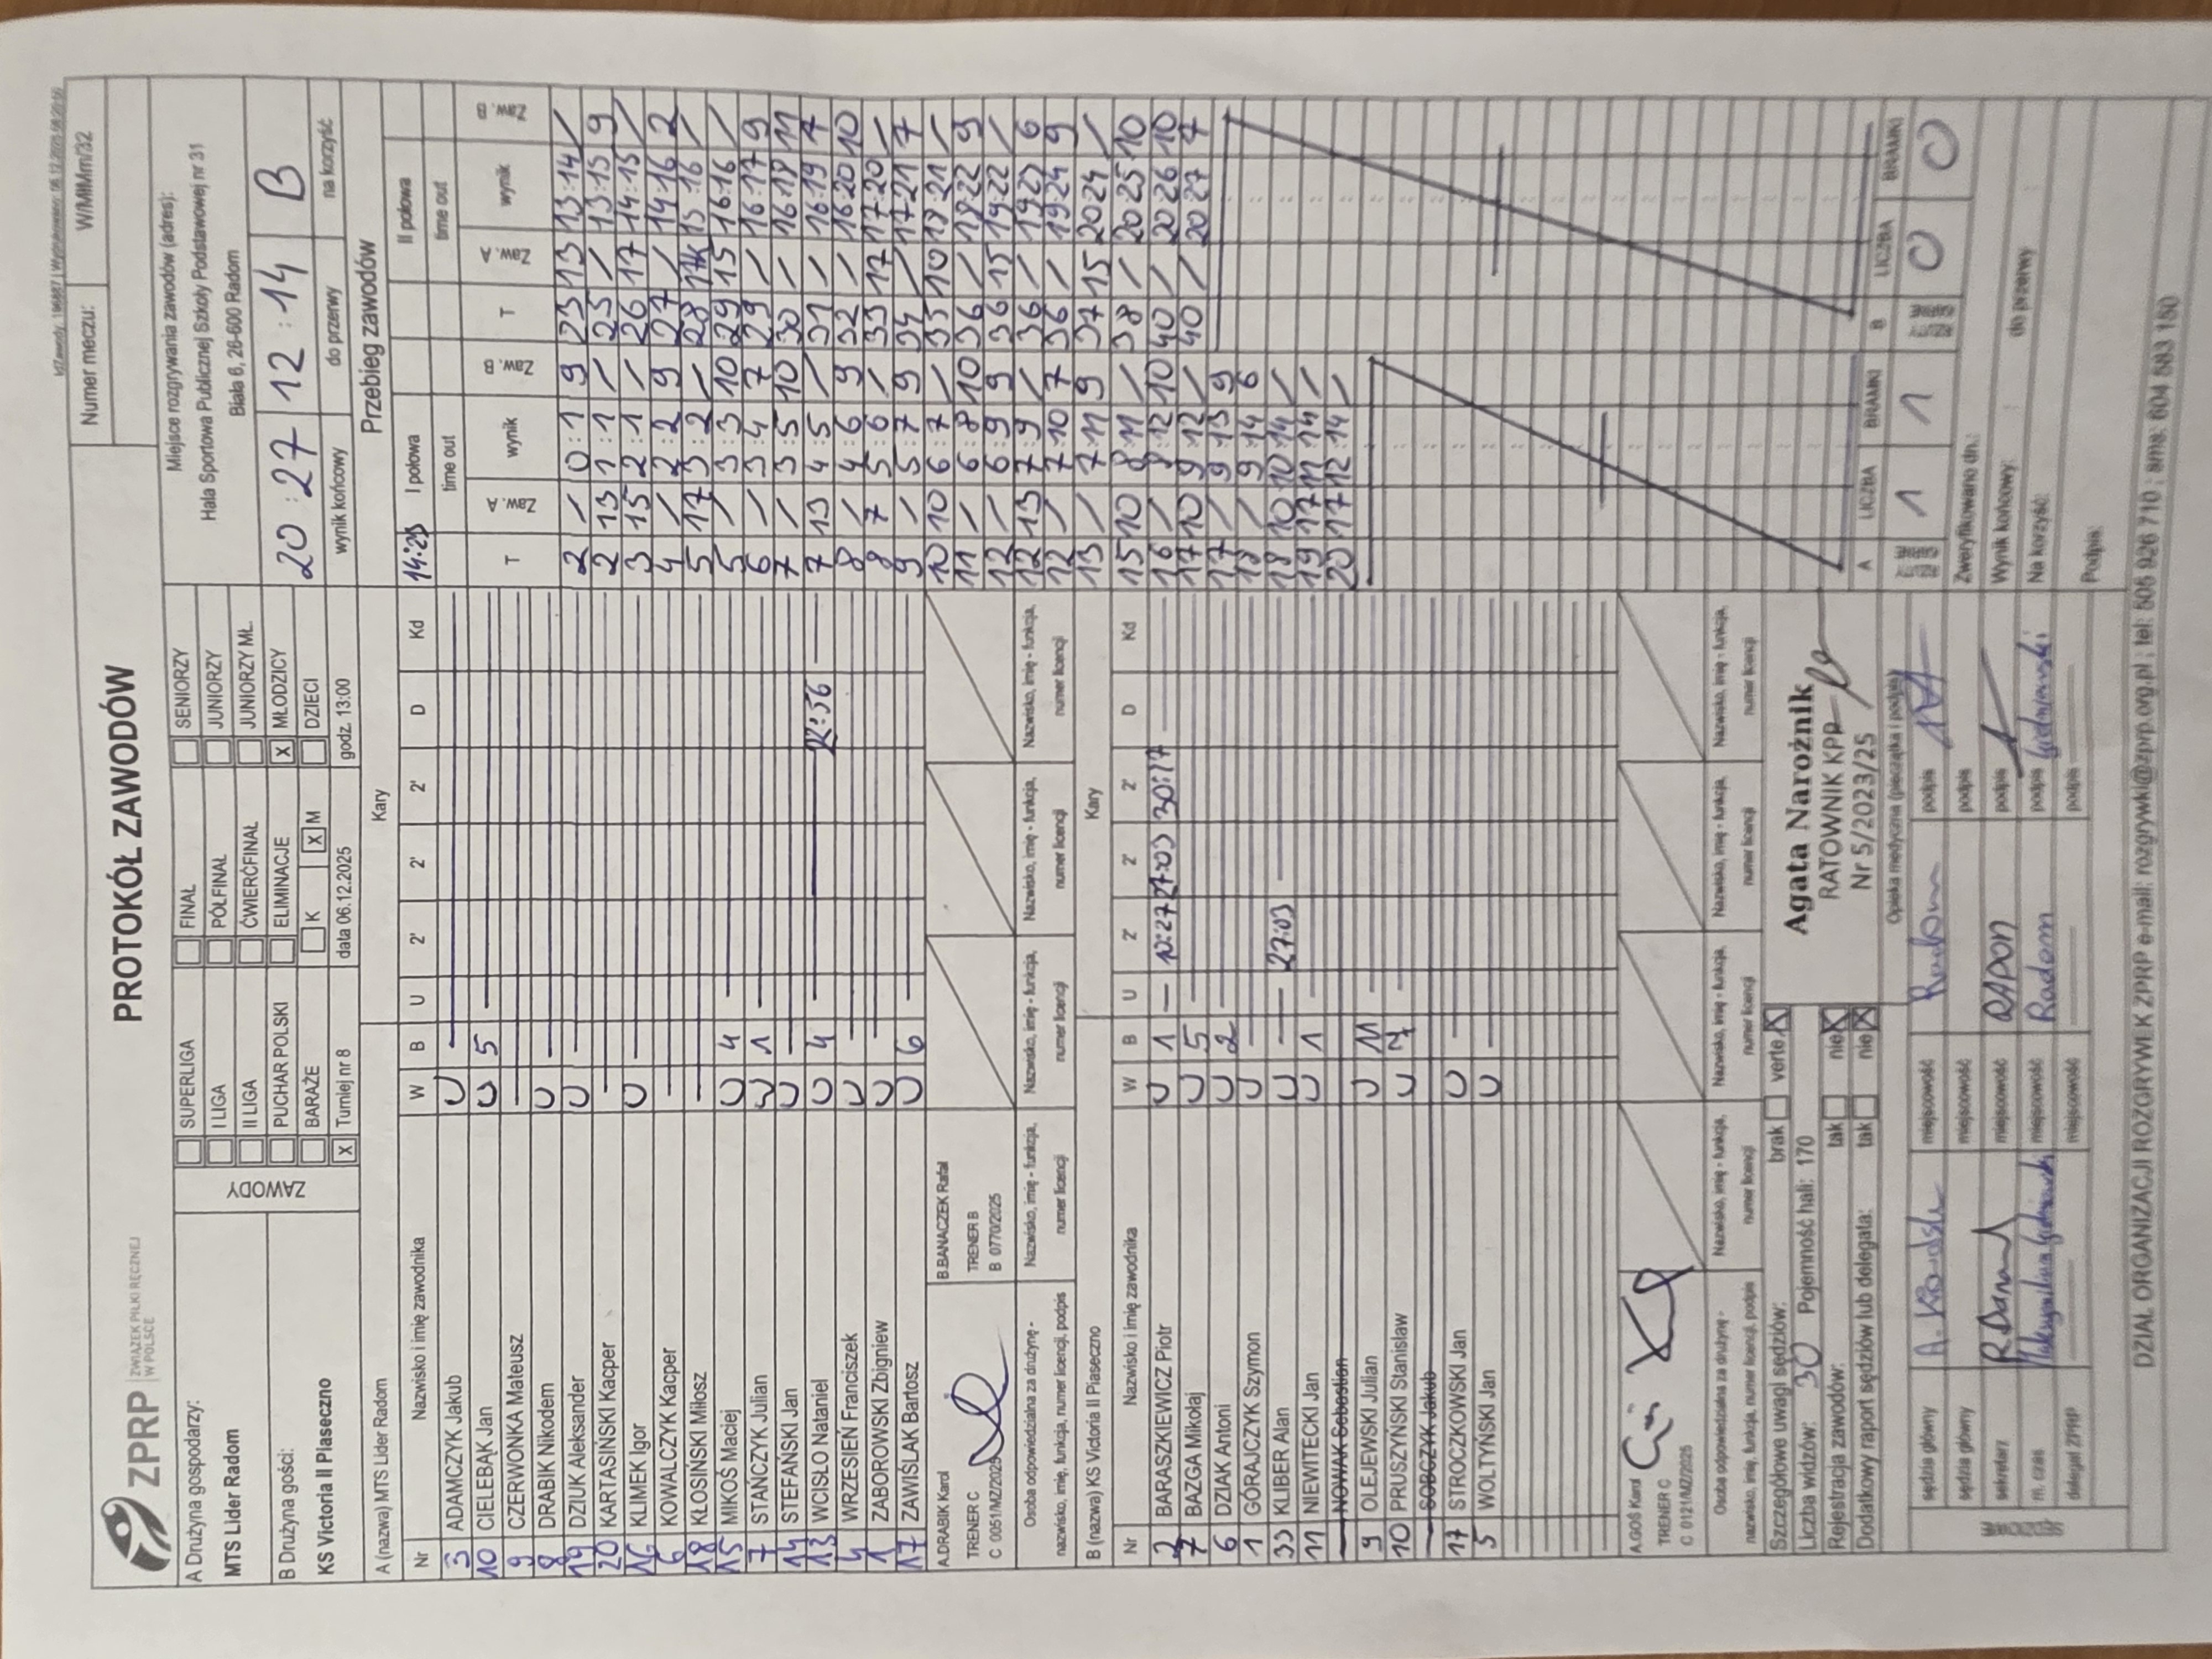 idZawody: 196887 | Wydrukowano: 06.12.2025 08:20:50
PROTOKÓŁ ZAWODÓW
ZPRP
ZWIĄZEK PIŁKI RĘCZNEJ
W POLSCE
Numer meczu: W/MMMm/32
A Drużyna gospodarzy:
MTS Lider Radom
B Drużyna gości:
KS Victoria II Piaseczno
ZAWODY
SUPERLIGA FINAŁ SENIORZY
I LIGA PÓŁFINAŁ JUNIORZY
II LIGA ĆWIERĆFINAŁ JUNIORZY MŁ.
PUCHAR POLSKI ELIMINACJE X MŁODZICY
BARAŻE K X M DZIECI
X Turniej nr 8 data 06.12.2025 godz. 13:00
Miejsce rozgrywania zawodów (adres):
Hala Sportowa Publicznej Szkoły Podstawowej nr 31
Biała 6, 26-600 Radom
20 : 27 12 : 14 B
wynik końcowy do przerwy na korzyść
A (nazwa) MTS Lider Radom Kary
Nr Nazwisko i imię zawodnika W B U 2' 2' 2' D Kd
3 ADAMCZYK Jakub U
10 CIELEBĄK Jan U 5
9 CZERWONKA Mateusz
8 DRABIK Nikodem U
19 DZIUK Aleksander U
20 KARTASIŃSKI Kacper
16 KLIMEK Igor U
6 KOWALCZYK Kacper
18 KŁOSIŃSKI Miłosz
15 MIKOŚ Maciej U 4
7 STAŃCZYK Julian U 1
14 STEFAŃSKI Jan U
13 WCISŁO Nataniel U 4 22:56
4 WRZESIEŃ Franciszek U
1 ZABOROWSKI Zbigniew U
17 ZAWIŚLAK Bartosz U 6
A.DRABIK Karol
TRENER C
C 0051/MZ/2025
B.BANACZEK Rafał
TRENER B
B 0770/2025
Osoba odpowiedzialna za drużynę -
nazwisko, imię, funkcja, numer licencji, podpis
Nazwisko, imię - funkcja,
numer licencji
Nazwisko, imię - funkcja,
numer licencji
Nazwisko, imię - funkcja,
numer licencji
Nazwisko, imię - funkcja,
numer licencji
B (nazwa) KS Victoria II Piaseczno Kary
Nr Nazwisko i imię zawodnika W B U 2' 2' 2' D Kd
2 BARASZKIEWICZ Piotr U 1 — 10:27 27:03 30:17
7 BAZGA Mikołaj U 5
6 DZIAK Antoni U 2
1 GÓRAJCZYK Szymon U
33 KLIBER Alan U — 27:03
11 NIEWITECKI Jan U 1
NOWAK Sebastian
9 OLEJEWSKI Julian U 11
10 PRUSZYŃSKI Stanisław U 7
SOBCZYK Jakub
17 STROCZKOWSKI Jan U
5 WOLTYŃSKI Jan U
A.GOŚ Karol
TRENER C
C 0121/MZ/2025
Osoba odpowiedzialna za drużynę -
nazwisko, imię, funkcja, numer licencji, podpis
Nazwisko, imię - funkcja,
numer licencji
Nazwisko, imię - funkcja,
numer licencji
Nazwisko, imię - funkcja,
numer licencji
Nazwisko, imię - funkcja,
numer licencji
Szczegółowe uwagi sędziów: brak verte X
Liczba widzów: 30 Pojemność hali: 170
Rejestracja zawodów: tak nie X
Dodatkowy raport sędziów lub delegata: tak nie X
Agata Narożnik
RATOWNIK KPP
Nr 5/2023/25
Opieka medyczna (pieczątka i podpis)
sędzia główny miejscowość Radom podpis
sędzia główny miejscowość podpis
sekretarz R.Banaś miejscowość RADOM podpis
m. czas miejscowość Radom podpis
delegat ZPRP miejscowość podpis
Przebieg zawodów
14:25 I połowa II połowa
time out time out
T Zaw. A wynik Zaw. B T Zaw. A wynik Zaw. B
2 / 0:1 9 23 13 13:14 /
2 13 1:1 / 25 / 13:15 9
3 15 2:1 / 26 17 14:15 /
4 / 2:2 9 27 / 14:16 2
5 17 3:2 / 28 17k 15:16 /
5 / 3:3 10 29 15 16:16 /
6 / 3:4 7 29 / 16:17 9
7 / 3:5 10 30 / 16:18 11
7 13 4:5 / 31 / 16:19 7
8 / 4:6 9 32 / 16:20 10
8 7 5:6 / 33 17 17:20 /
9 / 5:7 9 34 / 17:21 7
10 10 6:7 / 35 10 18:21 /
11 / 6:8 10 36 / 18:22 9
12 / 6:9 9 36 15 19:22 /
12 13 7:9 / 36 / 19:23 6
12 / 7:10 7 36 / 19:24 9
13 / 7:11 9 37 15 20:24 /
15 10 8:11 / 38 / 20:25 10
16 / 8:12 10 40 / 20:26 10
17 10 9:12 / 40 / 20:27 7
17 / 9:13 9
18 / 9:14 6
18 10 10:14 /
19 17 11:14 /
20 17 12:14 /
A LICZBA BRAMKI B LICZBA BRAMKI
1 1 0 0
Zweryfikowano dn.:
Wynik końcowy: do przerwy
Na korzyść:
Podpis:
DZIAŁ ORGANIZACJI ROZGRYWEK ZPRP e-mail: rozgrywki@zprp.org.pl ; tel: 505 926 710 ; sms: 604 583 150